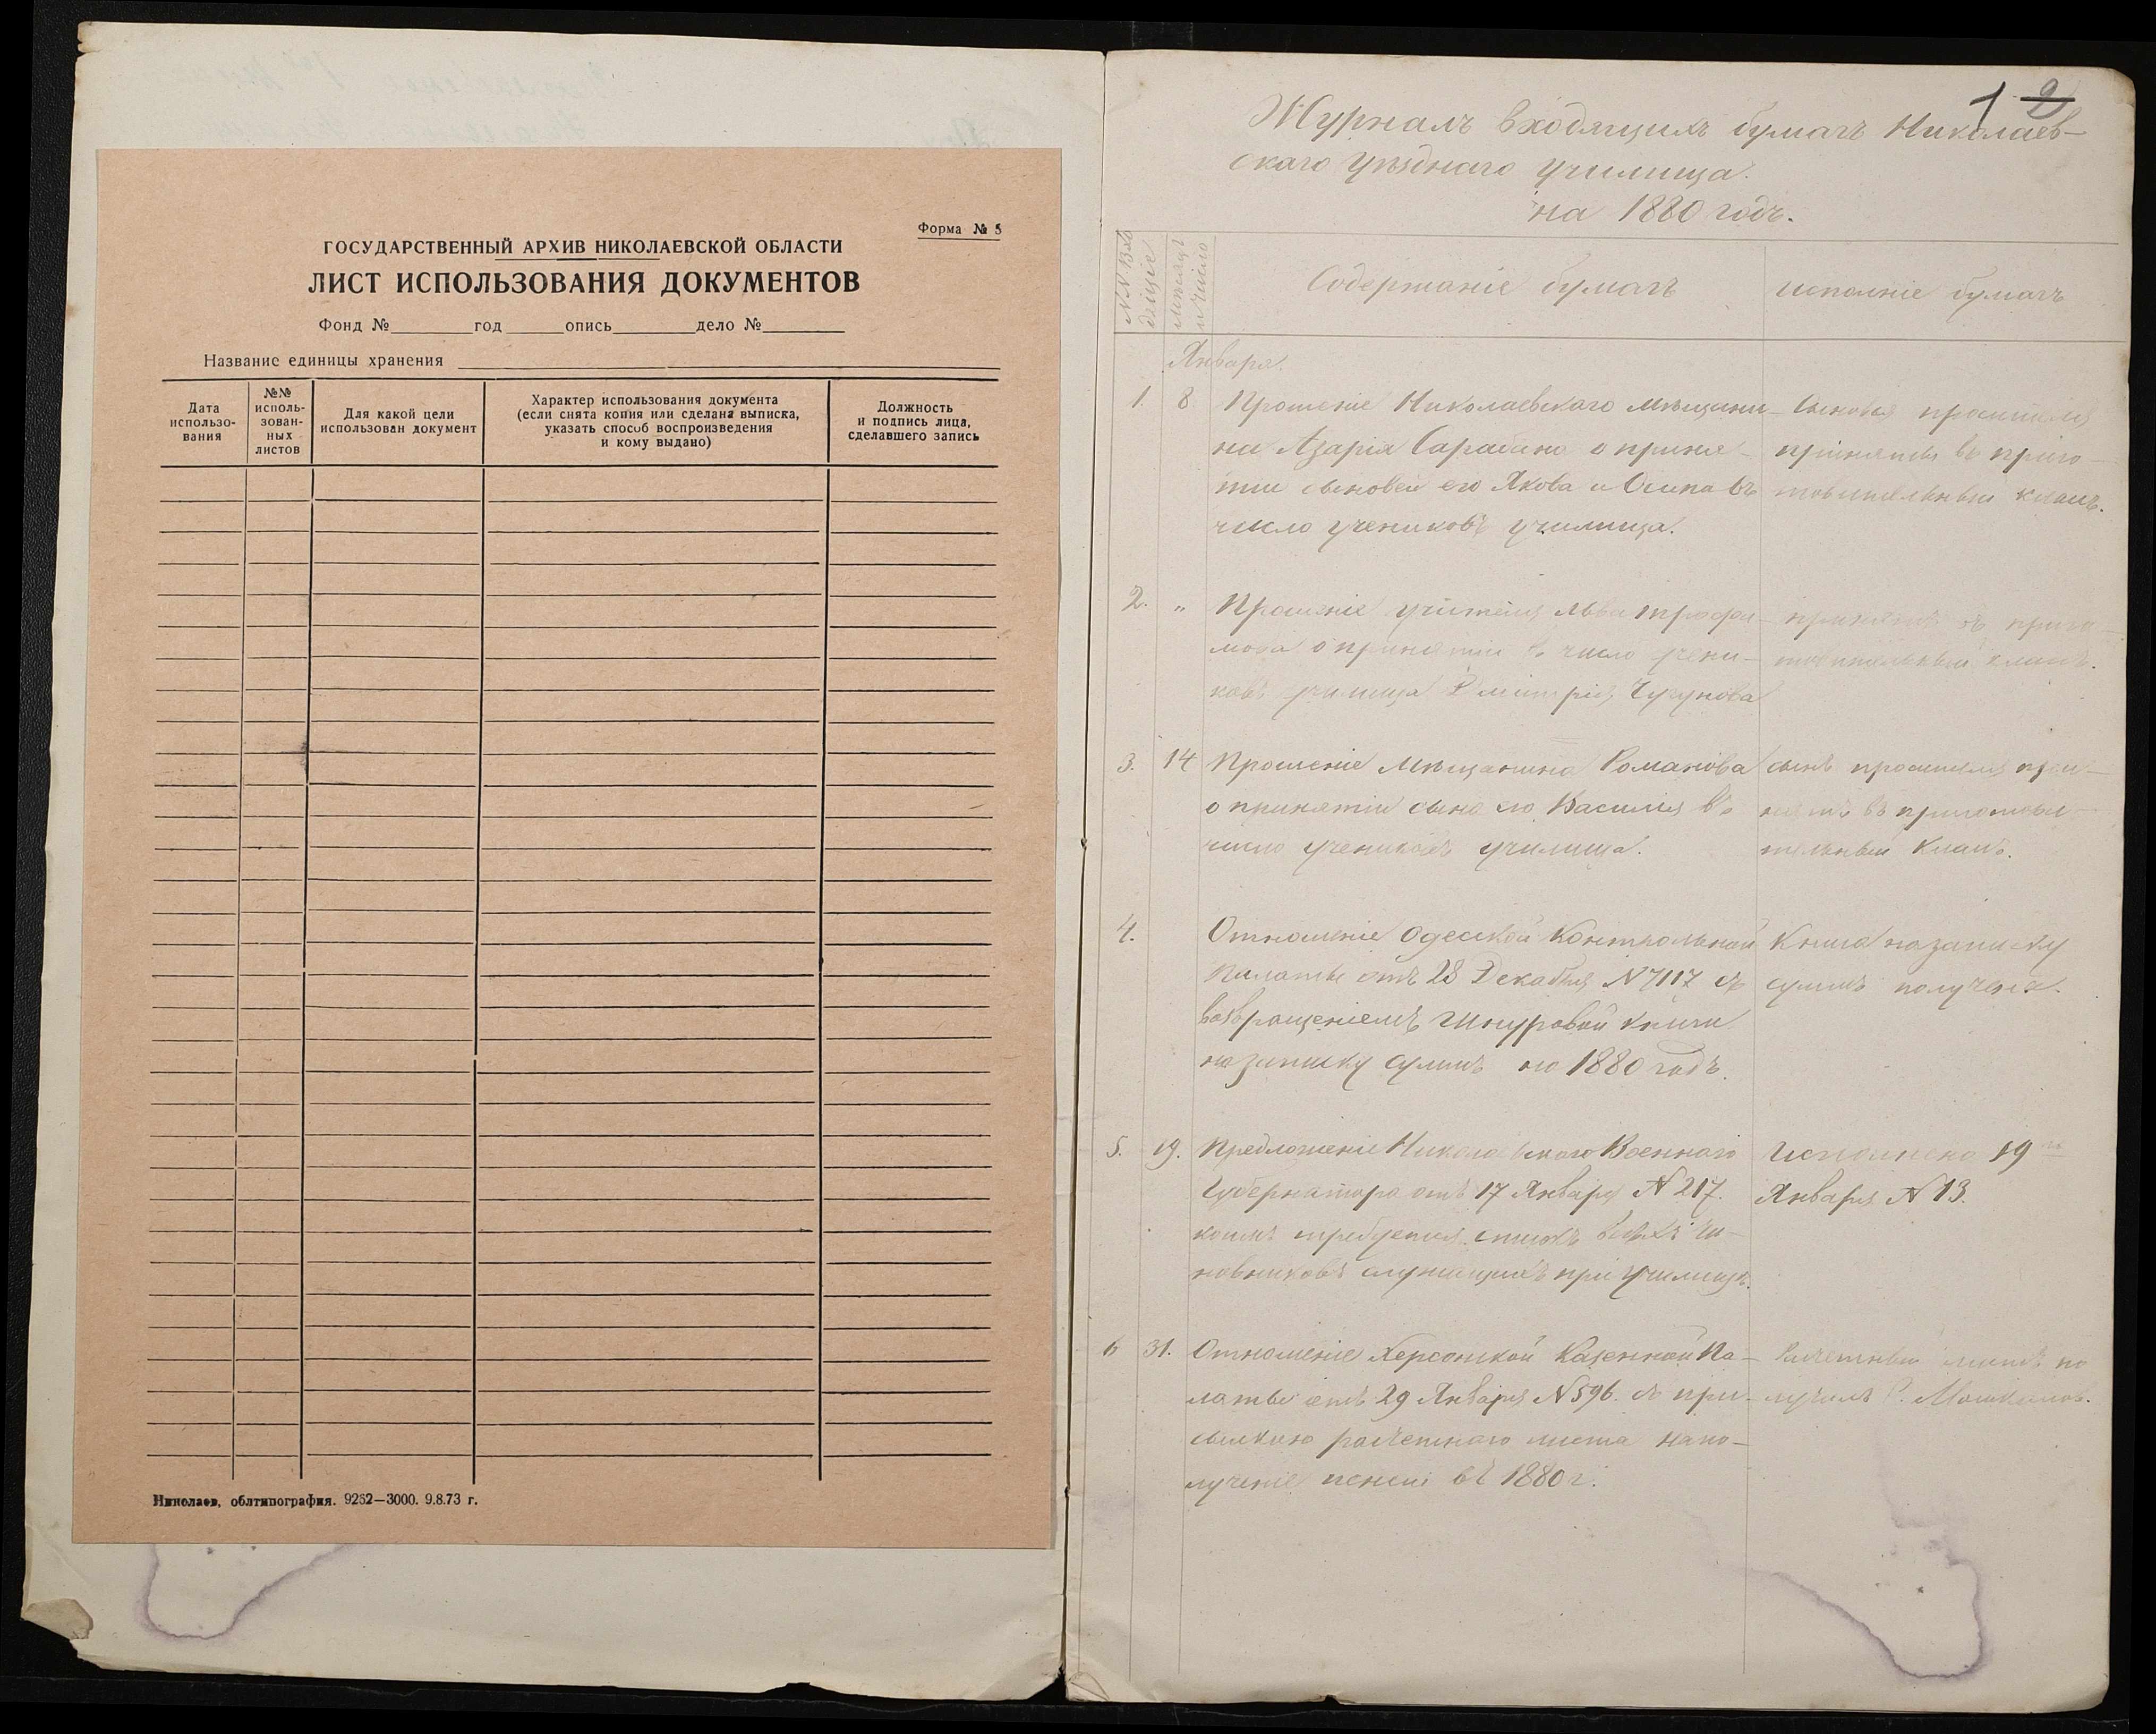 Форма № 5
ГОСУДАРСТВЕННЫЙ АРХИВ НИКОЛАЕВСКОЙ ОБЛАСТИ
ЛИСТ ИСПОЛЬЗОВАНИЯ ДОКУМЕНТОВ
Фонд № год опись дело №
Название единицы хранения
Дата использо-вания
№№ исполь-зован-ных листов
Для какой цели использован документ
Характер использования документа (если снята копия или сделана выписка, указать способ воспроизведения и кому выдано)
Должность и подпись лица, сделавшего запись
Николаев, облтипография. 9262—3000. 9.8.73 г.
1 2
Журналъ входящихъ бумагъ Николаев-
скаго уѣзднаго училища
на 1880 годъ.
NN Вхо
дящіе
мѣсяцъ
и число
Содержаніе бумагъ
исполніе бумагъ
Января
1. 8 Прошеніе Николаевскаго мѣщани-
на Азарія о приня-
тіи сыновей его Якова и Осипа въ
число учениковъ училища.
Сыновья просителя
приняты въ приго-
товительный классъ.
2. " Прошеніе учителя Льва Трофи-
мова о принятіи въ число учени-
ковъ училища Димитрія Чугунова
принятъ въ приго-
товительный классъ.
3. 14 Прошеніе мѣщанина Романова
о принятіи сына его Василія въ
число учениковъ училища.
сынъ просителя при-
нятъ въ приготови-
тельный классъ.
4. Отношеніе Одесской Контрольной
Палаты отъ 28 Декабря N 7117 съ
возвращеніемъ шнуровой книги
на записку суммъ на 1880 годъ.
Книга на записку
суммъ получена.
5. 19. Предложеніе Николаевскаго Военнаго
Губернатора отъ 17 Января N 217.
коимъ требуется списокъ всѣхъ чи-
новниковъ служащихъ при училищѣ.
Исполнено 19
Января N 13.
6 31. Отношеніе Херсонской Казенной Па-
латы отъ 29 Января N 596. съ при-
сылкою расчетнаго листа на по-
лученіе пенсіи въ 1880 г.
Расчетный листъ по
лучилъ Г.